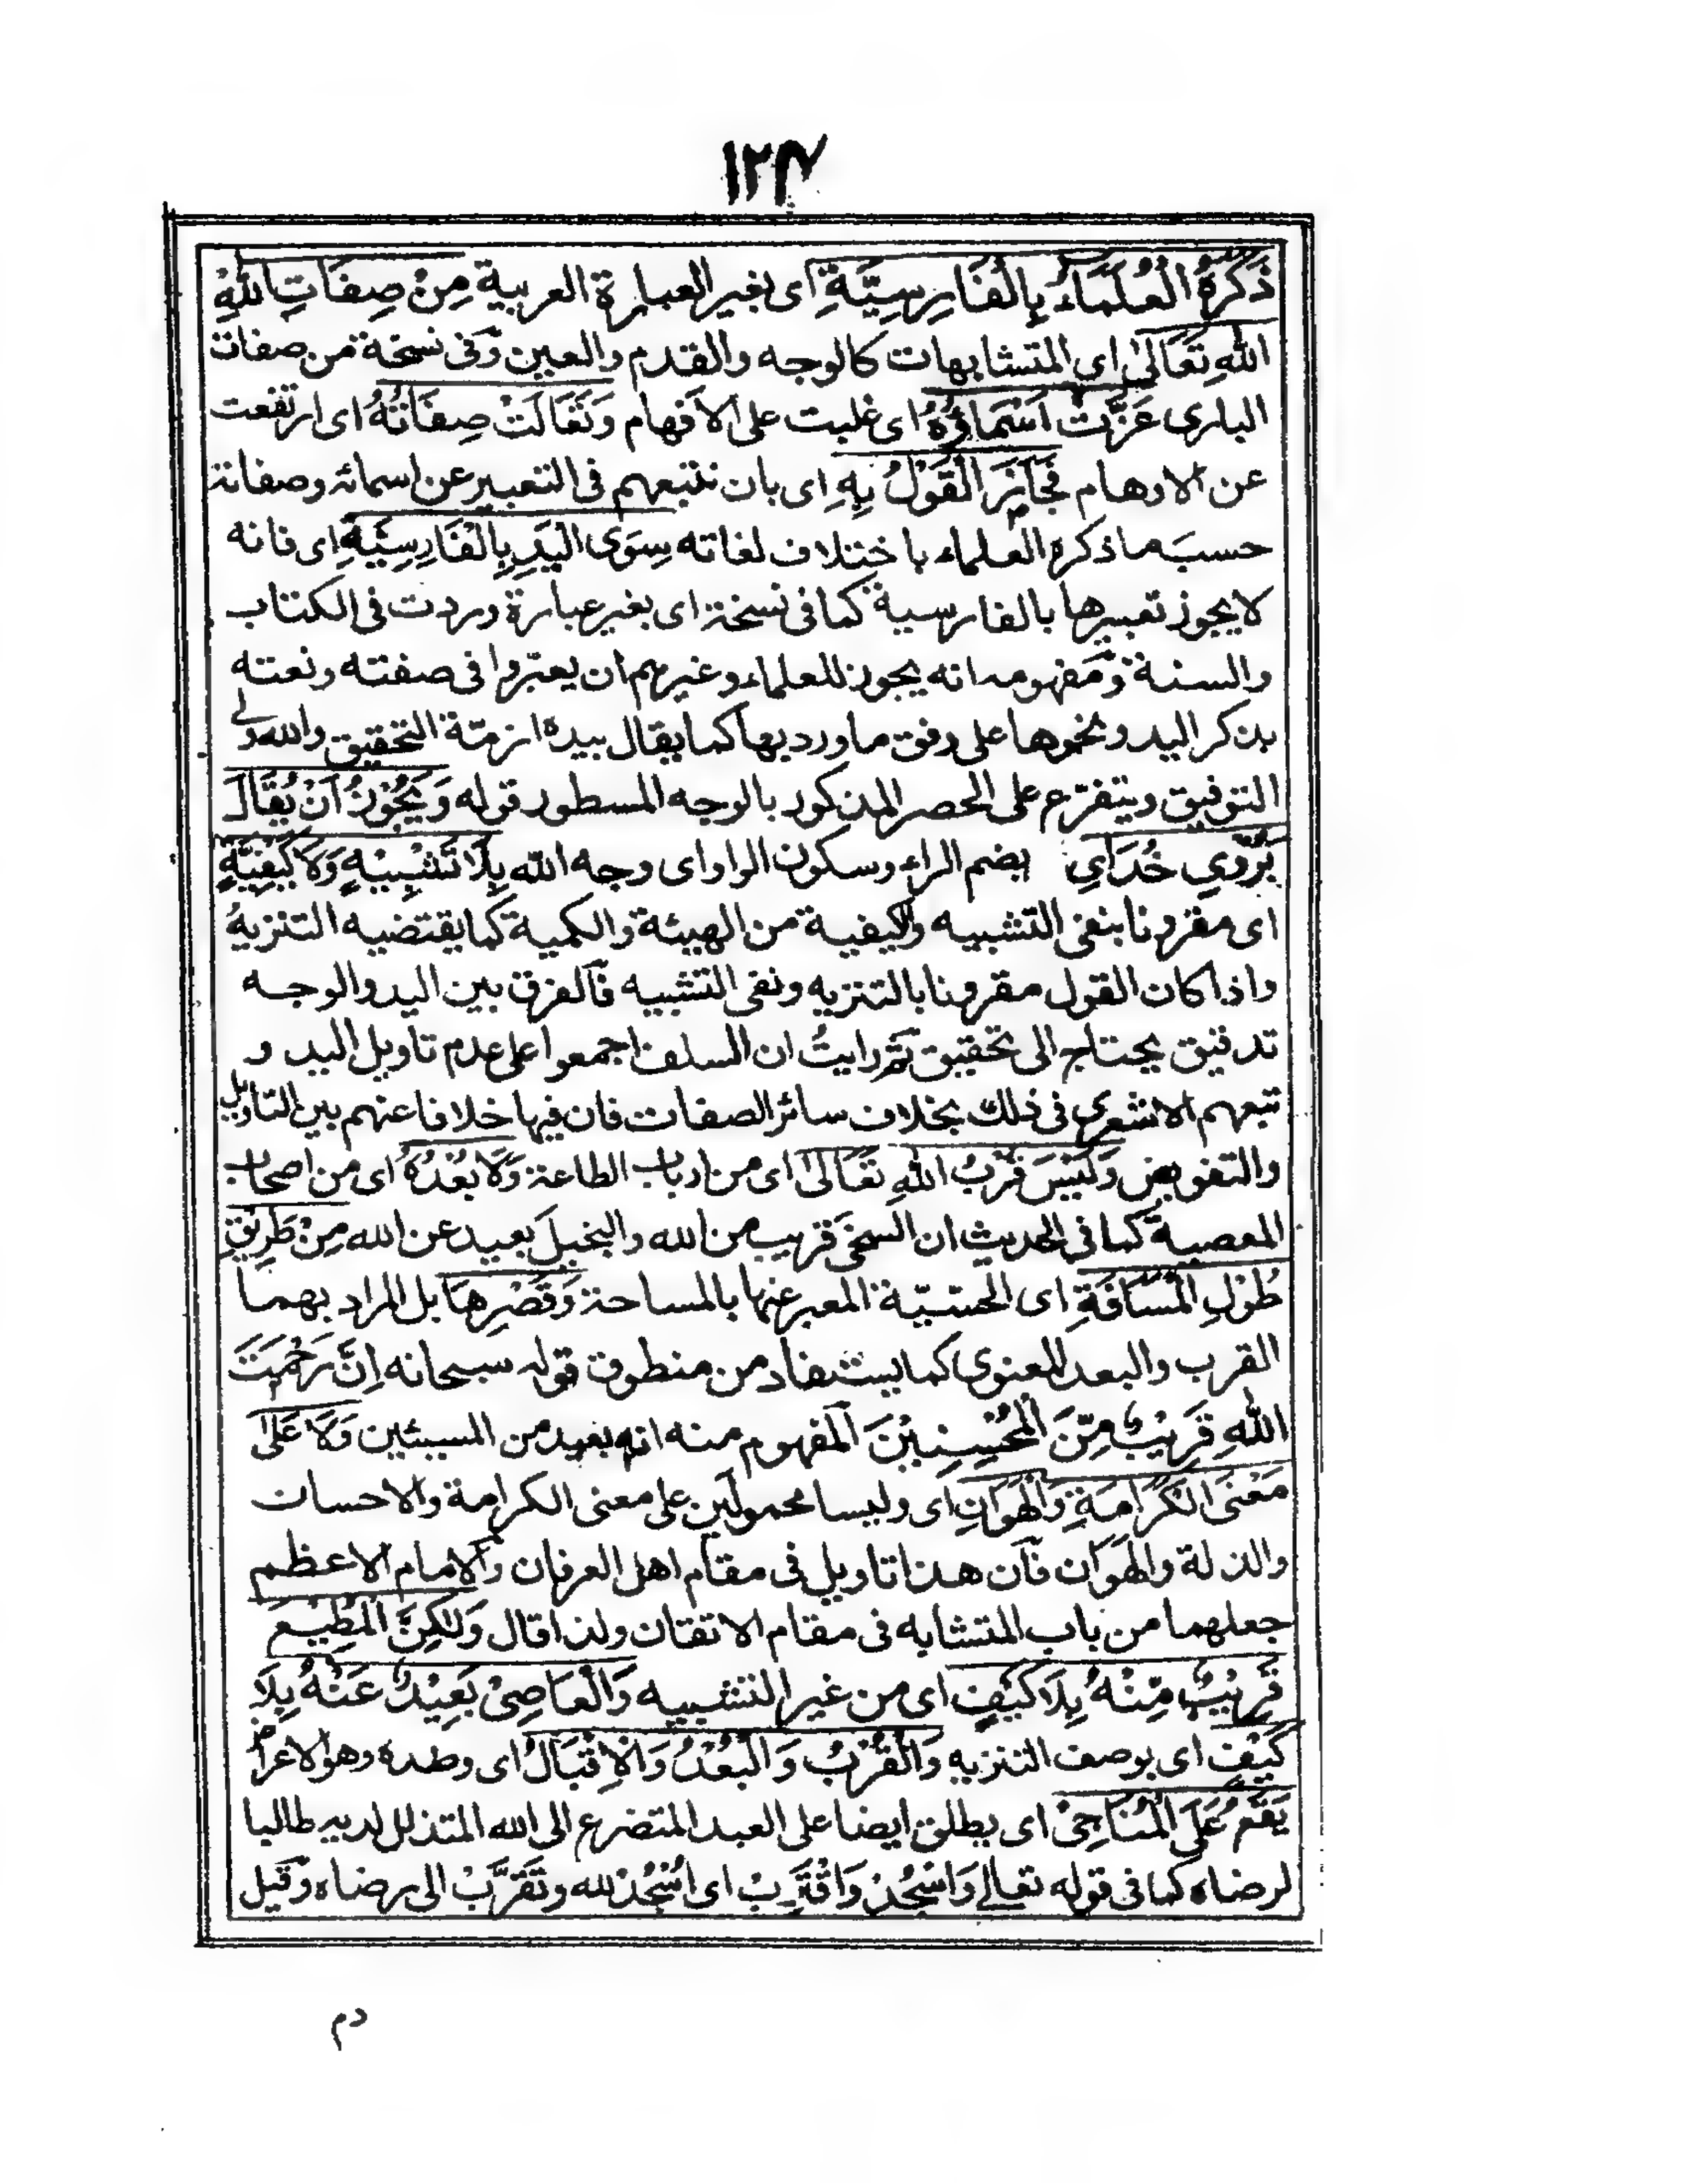 ١٢٤
ذَكَرَهُ الْعُلَمَاءُ بِالْفَارِسِيَّةِ اى بغير العبارة العربية مِنْ صِفَاتِ اللهِ
اللهِ تَعَالىٰ اى المتشابهات كالوجه والقدم والعين وَفى نسخة من صفات
البارى عَزَّتْ اَسْمَاؤُهُ اى غلبت على الافهام وَتَعَالَتْ صِفَاتُهُ اى ارتفعت
عن الاوهام فَجَائِزَ الْقَوْلُ بِهِ اى بان نتبعهم فى التعبير عن اسمائه وصفاته
حسبَ ما ذكره العلماء باختلاف لغاته سِوَى الْيَدِ بِالْفَارِسِيَّةِ اى فانه
لا يجوز تعبيرها بالفارسية كما فى نسخة اى بغير عبارة وردت فى الكتاب
والسنة وَمفهومه انه يجوز للعلماء وغيرهم ان يعبّروا فى صفته ونعته
بذكر اليد ونحوها على وفق ما ورد بها كما يقال بيده ازمّة التحقيق والله ولى
التوفيق ويتفرّع على الحصر المذكور بالوجه المسطور قوله وَيَجُوْزُ اَنْ يُقَالَ
بَرُوْىِ خُدَاىِ بضم الراء وسكون الواو اى وجه الله بِلَا تَشْبِيْهٍ وَلَا كَيْفِيَّةٍ
اى مقرونا بنفى التشبيه والكيفية من الهيئة والكمية كما يقتضيه التنزيهُ
واذا كان القول مقرونا بالتنزيه ونفى التشبيه فآلفرق بين اليد والوجه
تدقيق يحتاج الى تحقيق ثم رايتُ ان السلف اجمعوا على عدم تاويل اليد و
تبعهم الاشعرى فى ذلك بخلاف سائر الصفات فان فيها خلافا عنهم بين التاويل
والتفويض وَلَيْسَ قُرْبُ اللهِ تَعَالىٰ اى من ارباب الطاعة وَلَا بُعْدُهُ اى من اصحاب
المعصية كما فى الحديث ان السخىَ قريب من الله والبخيلَ بعيد عن الله مِنْ طَرِيْقِ
طُوْلِ الْمَسَافَةِ اى الحسّيّة المعبر عنها بالمساحة وَقَصْرِهَا بل المراد بهما
القرب والبعد المعنوى كما يستفاد من منطوق قوله سبحانه اِنَّ رَحْمَتَ
اللهِ قَرِيْبٌ مِّنَ الْمُحْسِنِيْنَ اَلمفهوم منه انه بعيد من المسيئين وَلَا عَلىٰ
مَعْنَى الْكَرَامَةِ وَالْهَوَانِ اى وليسا محمولَين على معنى الكرامة والاحسان
والذلة والهوَان فآن هذا تاويل فى مقام اهل العرفان وَالامام الاعظم
جعلهما من باب المتشابه فى مقام الاتقان ولذا قال وَلٰكِنَّ الْمُطِيْعَ
قَرِيْبٌ مِّنْهُ بِلَا كَيْفٍ اى من غير التشبيه وَالْعَاصِىْ بَعِيْدٌ عَنْهُ بِلَا
كَيْفٍ اى بوصف التنزيه وَالْقُرْبُ وَالْبُعْدُ وَالْاِقْبَالُ اى وضده وهو الاعراض
يَقَعُ عَلَى الْمُنَاجِىْ اى يطلق ايضا على العبد المتضرع الى الله المتذلل لديه طالبا
لرضاه كما فى قوله تعالى وَاسْجُدْ وَاقْتَرِبْ اى اُسْجُدْ لله وتَقَرَّبْ الى رضاه وَقيل
دم